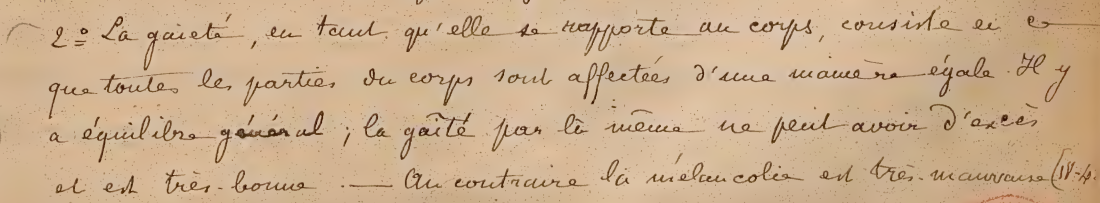 2º La gaieté, en tant qu'elle se rapporte au corps, consiste en ce
que toutes les parties du corps sont affectées d'une manière égale. Il y
a équilibre général ; la gaîté par là même ne peut avoir d'excès
et est très-bonne. — Au contraire la mélancolie est très-mauvaise (IV-4